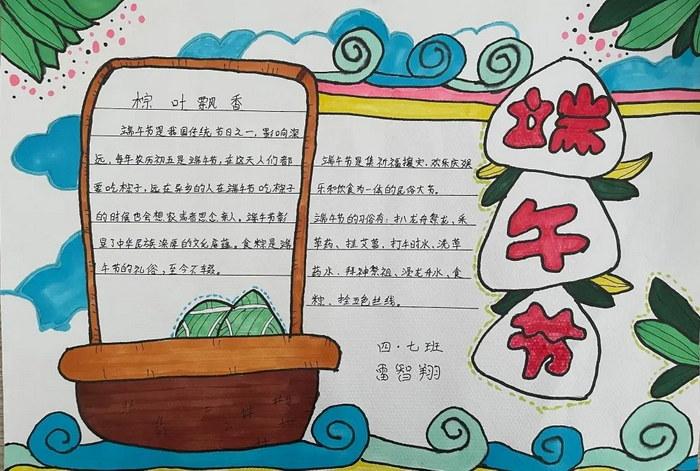 粽叶飘香
端午节是我国传统节日之一,影响深
远,每年农历初五是端午节,在这天人们都
要吃粽子,远在异乡的人在端午节吃粽子
的时候也会想家或者思念亲人。端午节彰
显了中华民族深厚的文化底蕴。食粽是端
午节的礼俗,至今不辍。
端午节是集祈福攘灾、欢乐庆娱
乐和饮食为一体的民俗大节。
端午节的习俗有:扒龙舟祭龙,采
草药、挂艾蒿、打午时水、洗草
药水、拜神祭祖、浸龙舟水、食
粽、拴五色丝线。
四·七班
雷智翔
端午节